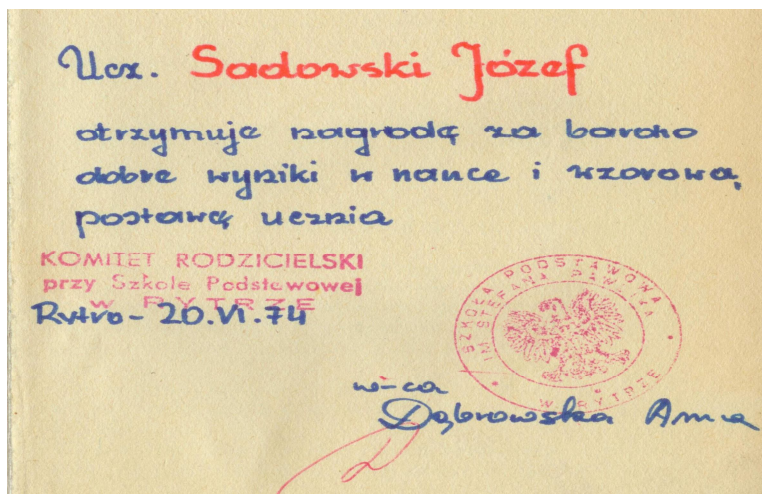 Ucz. Sadowski Józef
otrzymuje nagrodę za bardzo
dobre wyniki w nauce i wzorową
postawę ucznia
KOMITET RODZICIELSKI
przy Szkole Podstawowej
w RYTRZE
Rytro - 20.VI.74
SZKOŁA PODSTAWOWA
IM STEFANA
W RYTRZE
w-ca
Dąbrowska Anna